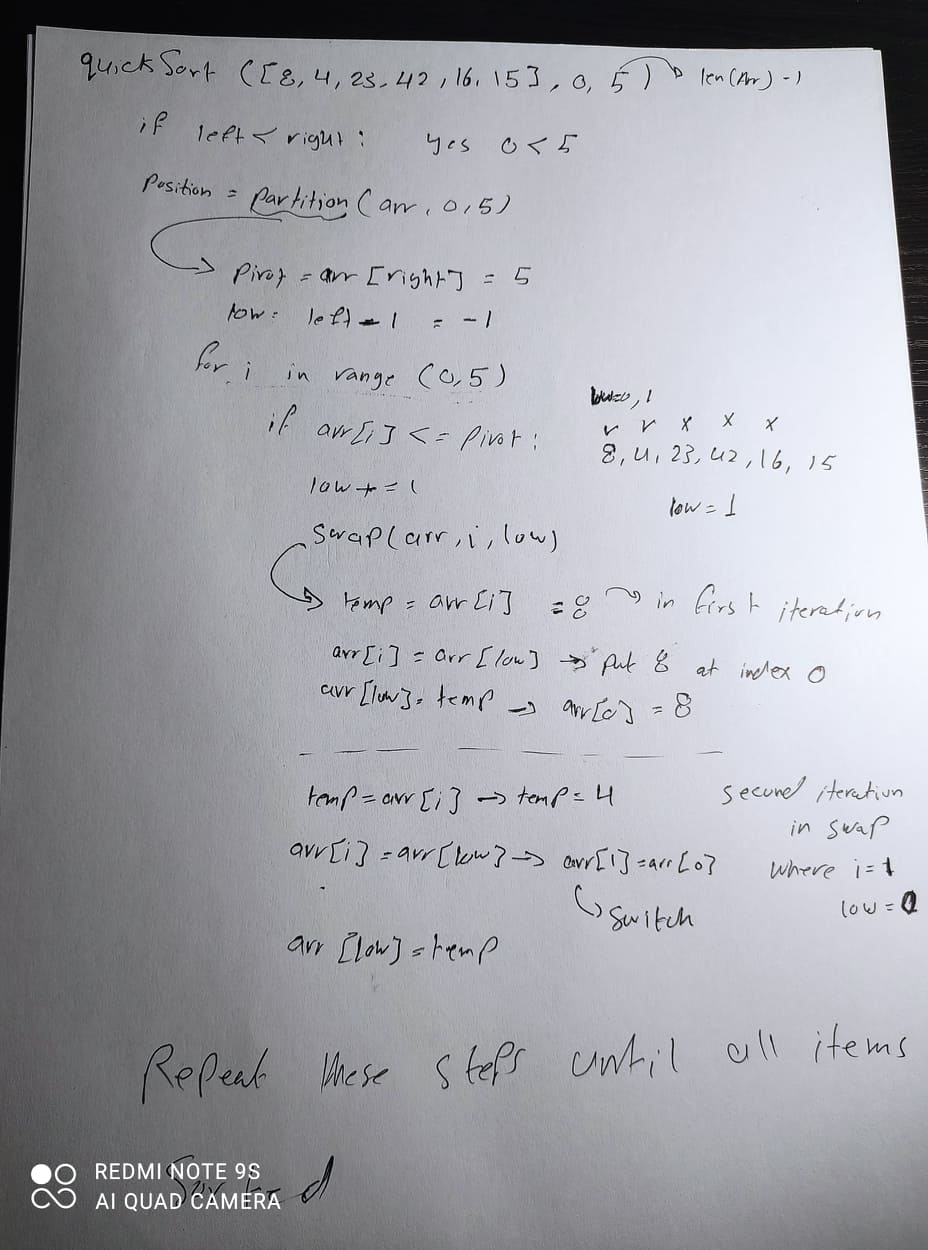 quickSort ([8, 4, 23, 42, 16, 15], 0, 5) → len(Arr) - 1
if left < right: yes 0 < 5
Position = Partition (arr, 0, 5)
Pivot = arr [right] = 5
low = left - 1 = -1
for i in range (0, 5)
low=0, 1
if arr[i] <= Pivot:
✓ ✓ x x x
8, 4, 23, 42, 16, 15
low += 1
low = 1
Swap(arr, i, low)
temp = arr [i] = 8 → in first iteration
arr[i] = arr [low] → Put 8 at index 0
arr [low] = temp → arr[0] = 8
temp = arr [i] → temp = 4
second iteration
in swap
arr[i] = arr [low] → arr [1] = arr [0]
where i = 1
low = 0
↳ Switch
arr [low] = temp
Repeat these steps until all items
Sorted
REDMI NOTE 9S
AI QUAD CAMERA